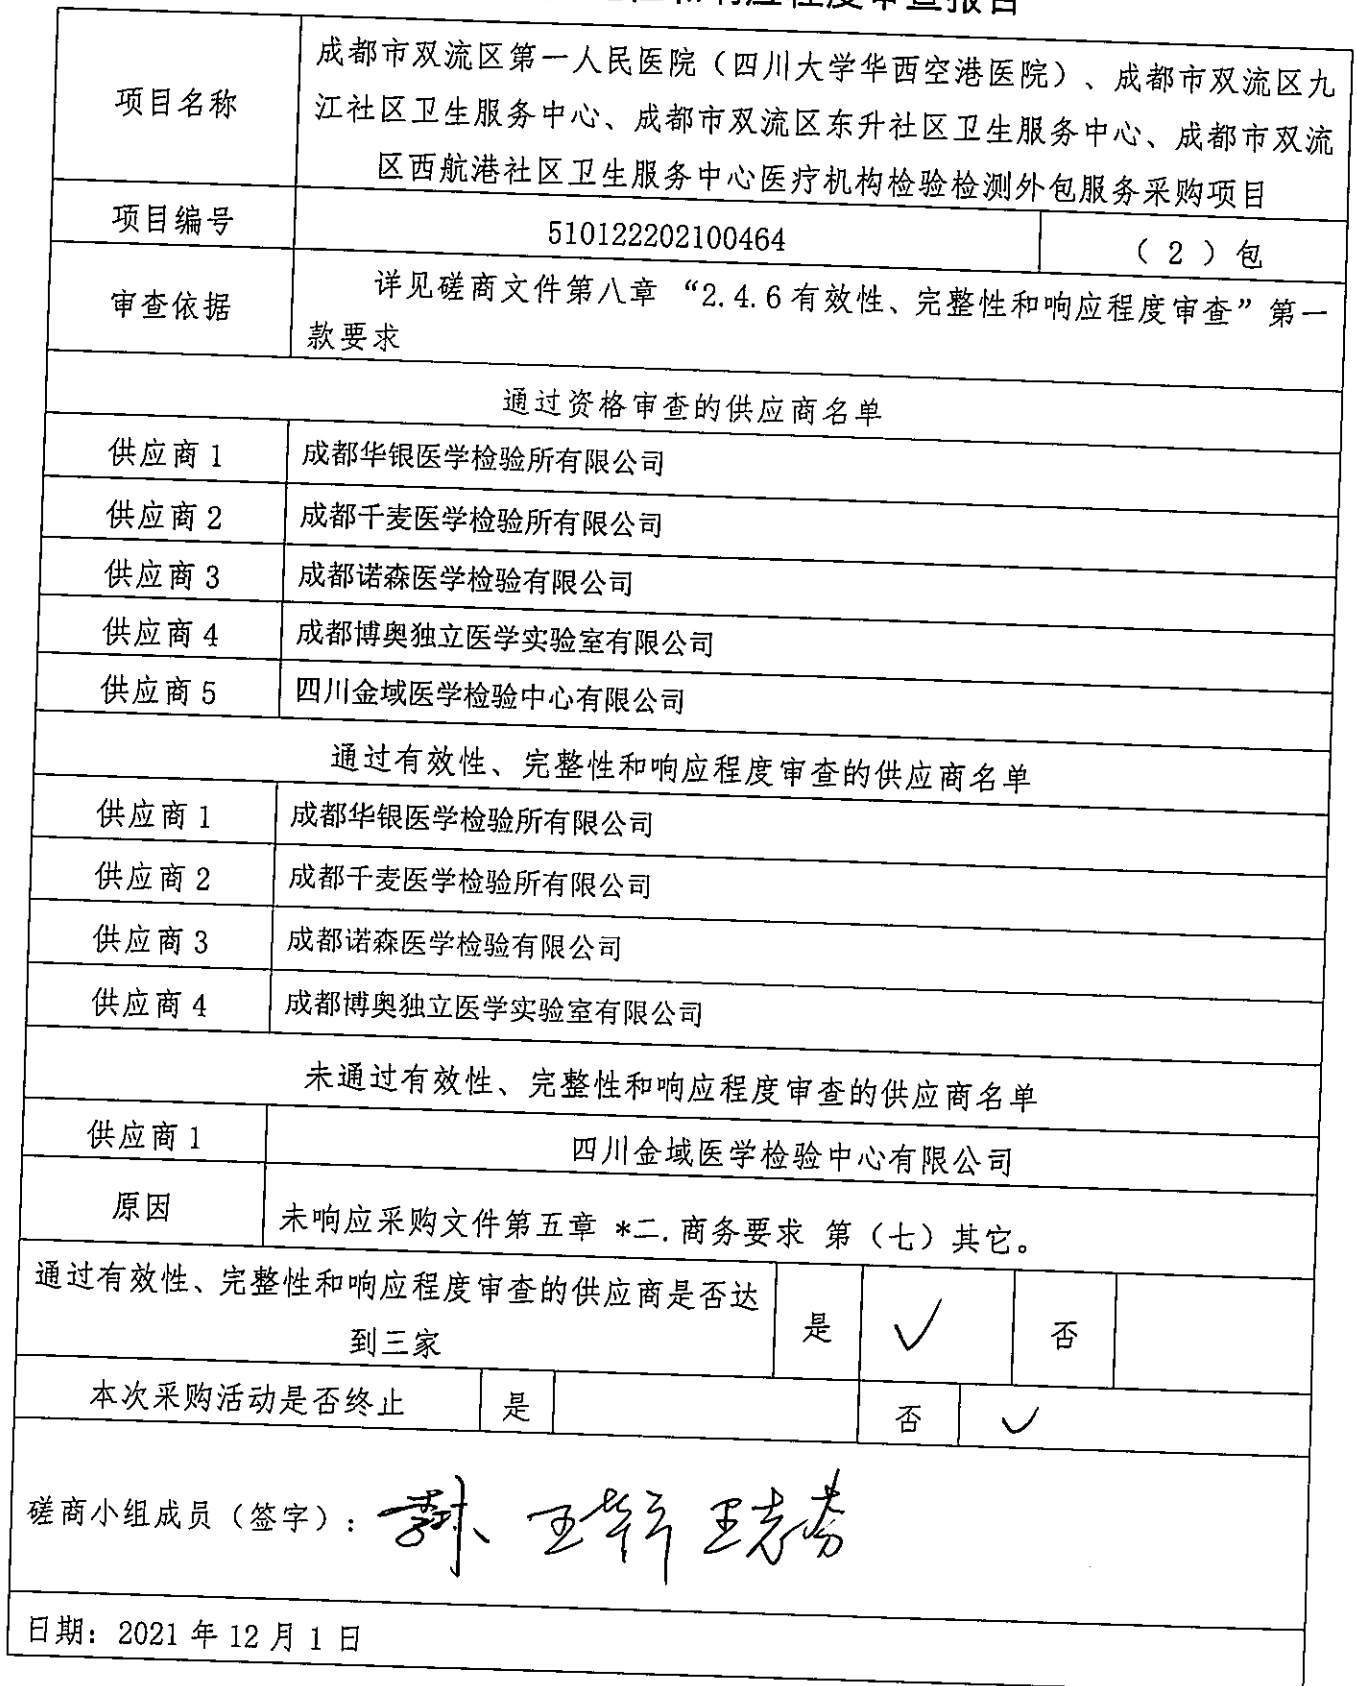 和响应程度审查报告
项目名称
成都市双流区第一人民医院（四川大学华西空港医院）、成都市双流区九
江社区卫生服务中心、成都市双流区东升社区卫生服务中心、成都市双流
区西航港社区卫生服务中心医疗机构检验检测外包服务采购项目
项目编号 510122202100464 （2）包
审查依据
详见磋商文件第八章 “2.4.6有效性、完整性和响应程度审查”第一
款要求
通过资格审查的供应商名单
供应商1 成都华银医学检验所有限公司
供应商2 成都千麦医学检验所有限公司
供应商3 成都诺森医学检验有限公司
供应商4 成都博奥独立医学实验室有限公司
供应商5 四川金域医学检验中心有限公司
通过有效性、完整性和响应程度审查的供应商名单
供应商1 成都华银医学检验所有限公司
供应商2 成都千麦医学检验所有限公司
供应商3 成都诺森医学检验有限公司
供应商4 成都博奥独立医学实验室有限公司
未通过有效性、完整性和响应程度审查的供应商名单
供应商1 四川金域医学检验中心有限公司
原因 未响应采购文件第五章 *二.商务要求 第（七）其它。
通过有效性、完整性和响应程度审查的供应商是否达
到三家 是 ✓ 否
本次采购活动是否终止 是 否 ✓
磋商小组成员（签字）：
日期：2021年12月1日